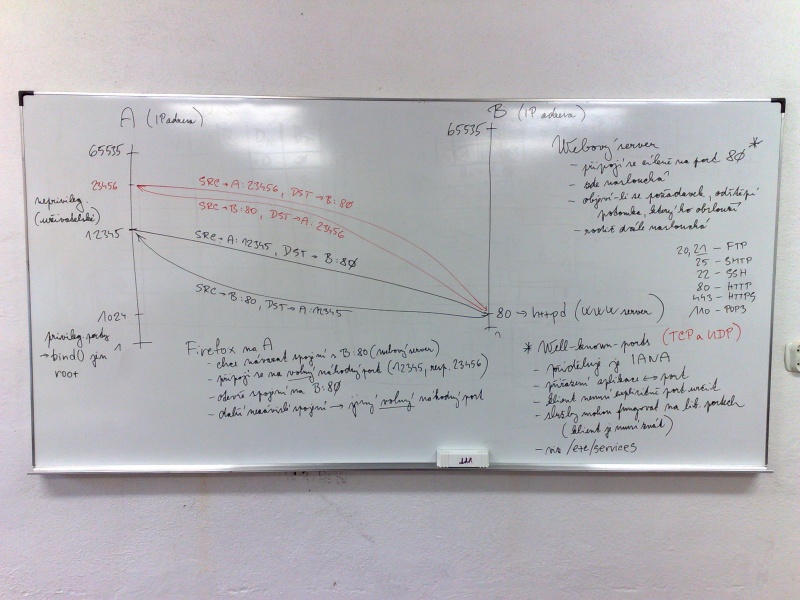 A (IP adresa)
65535
23456
neprivileg.
(uživatelské)
12345
1024
privileg. porty
→ bind() jen
root
1
SRC → A:23456, DST → B:80
SRC → B:80, DST → A:23456
SRC → A:12345, DST → B:80
SRC → B:80, DST → A:12345
B (IP adresa)
65535
80 → httpd (WWW server)
1
Firefox na A
- chce navázat spojení s B:80 (webový server)
- připojí se na volný náhodný port (12345, resp. 23456)
- otevře spojení na B:80
- další nezávislé spojení → jiný volný náhodný port
Webový server *
- připojí se cíleně na port 80
- zde naslouchá
- objeví-li se požadavek, odštěpí
potomka, který ho obslouží
- rodič dále naslouchá
20,21 - FTP
25 - SMTP
22 - SSH
80 - HTTP
443 - HTTPS
110 - POP3
* Well-known-ports (TCP a UDP)
- přiděluje je IANA
- přiřazení aplikace ↔ port
- klient nemusí explicitně port určit
- služby mohou fungovat na lib. portech
(klient je musí znát)
- viz /etc/services